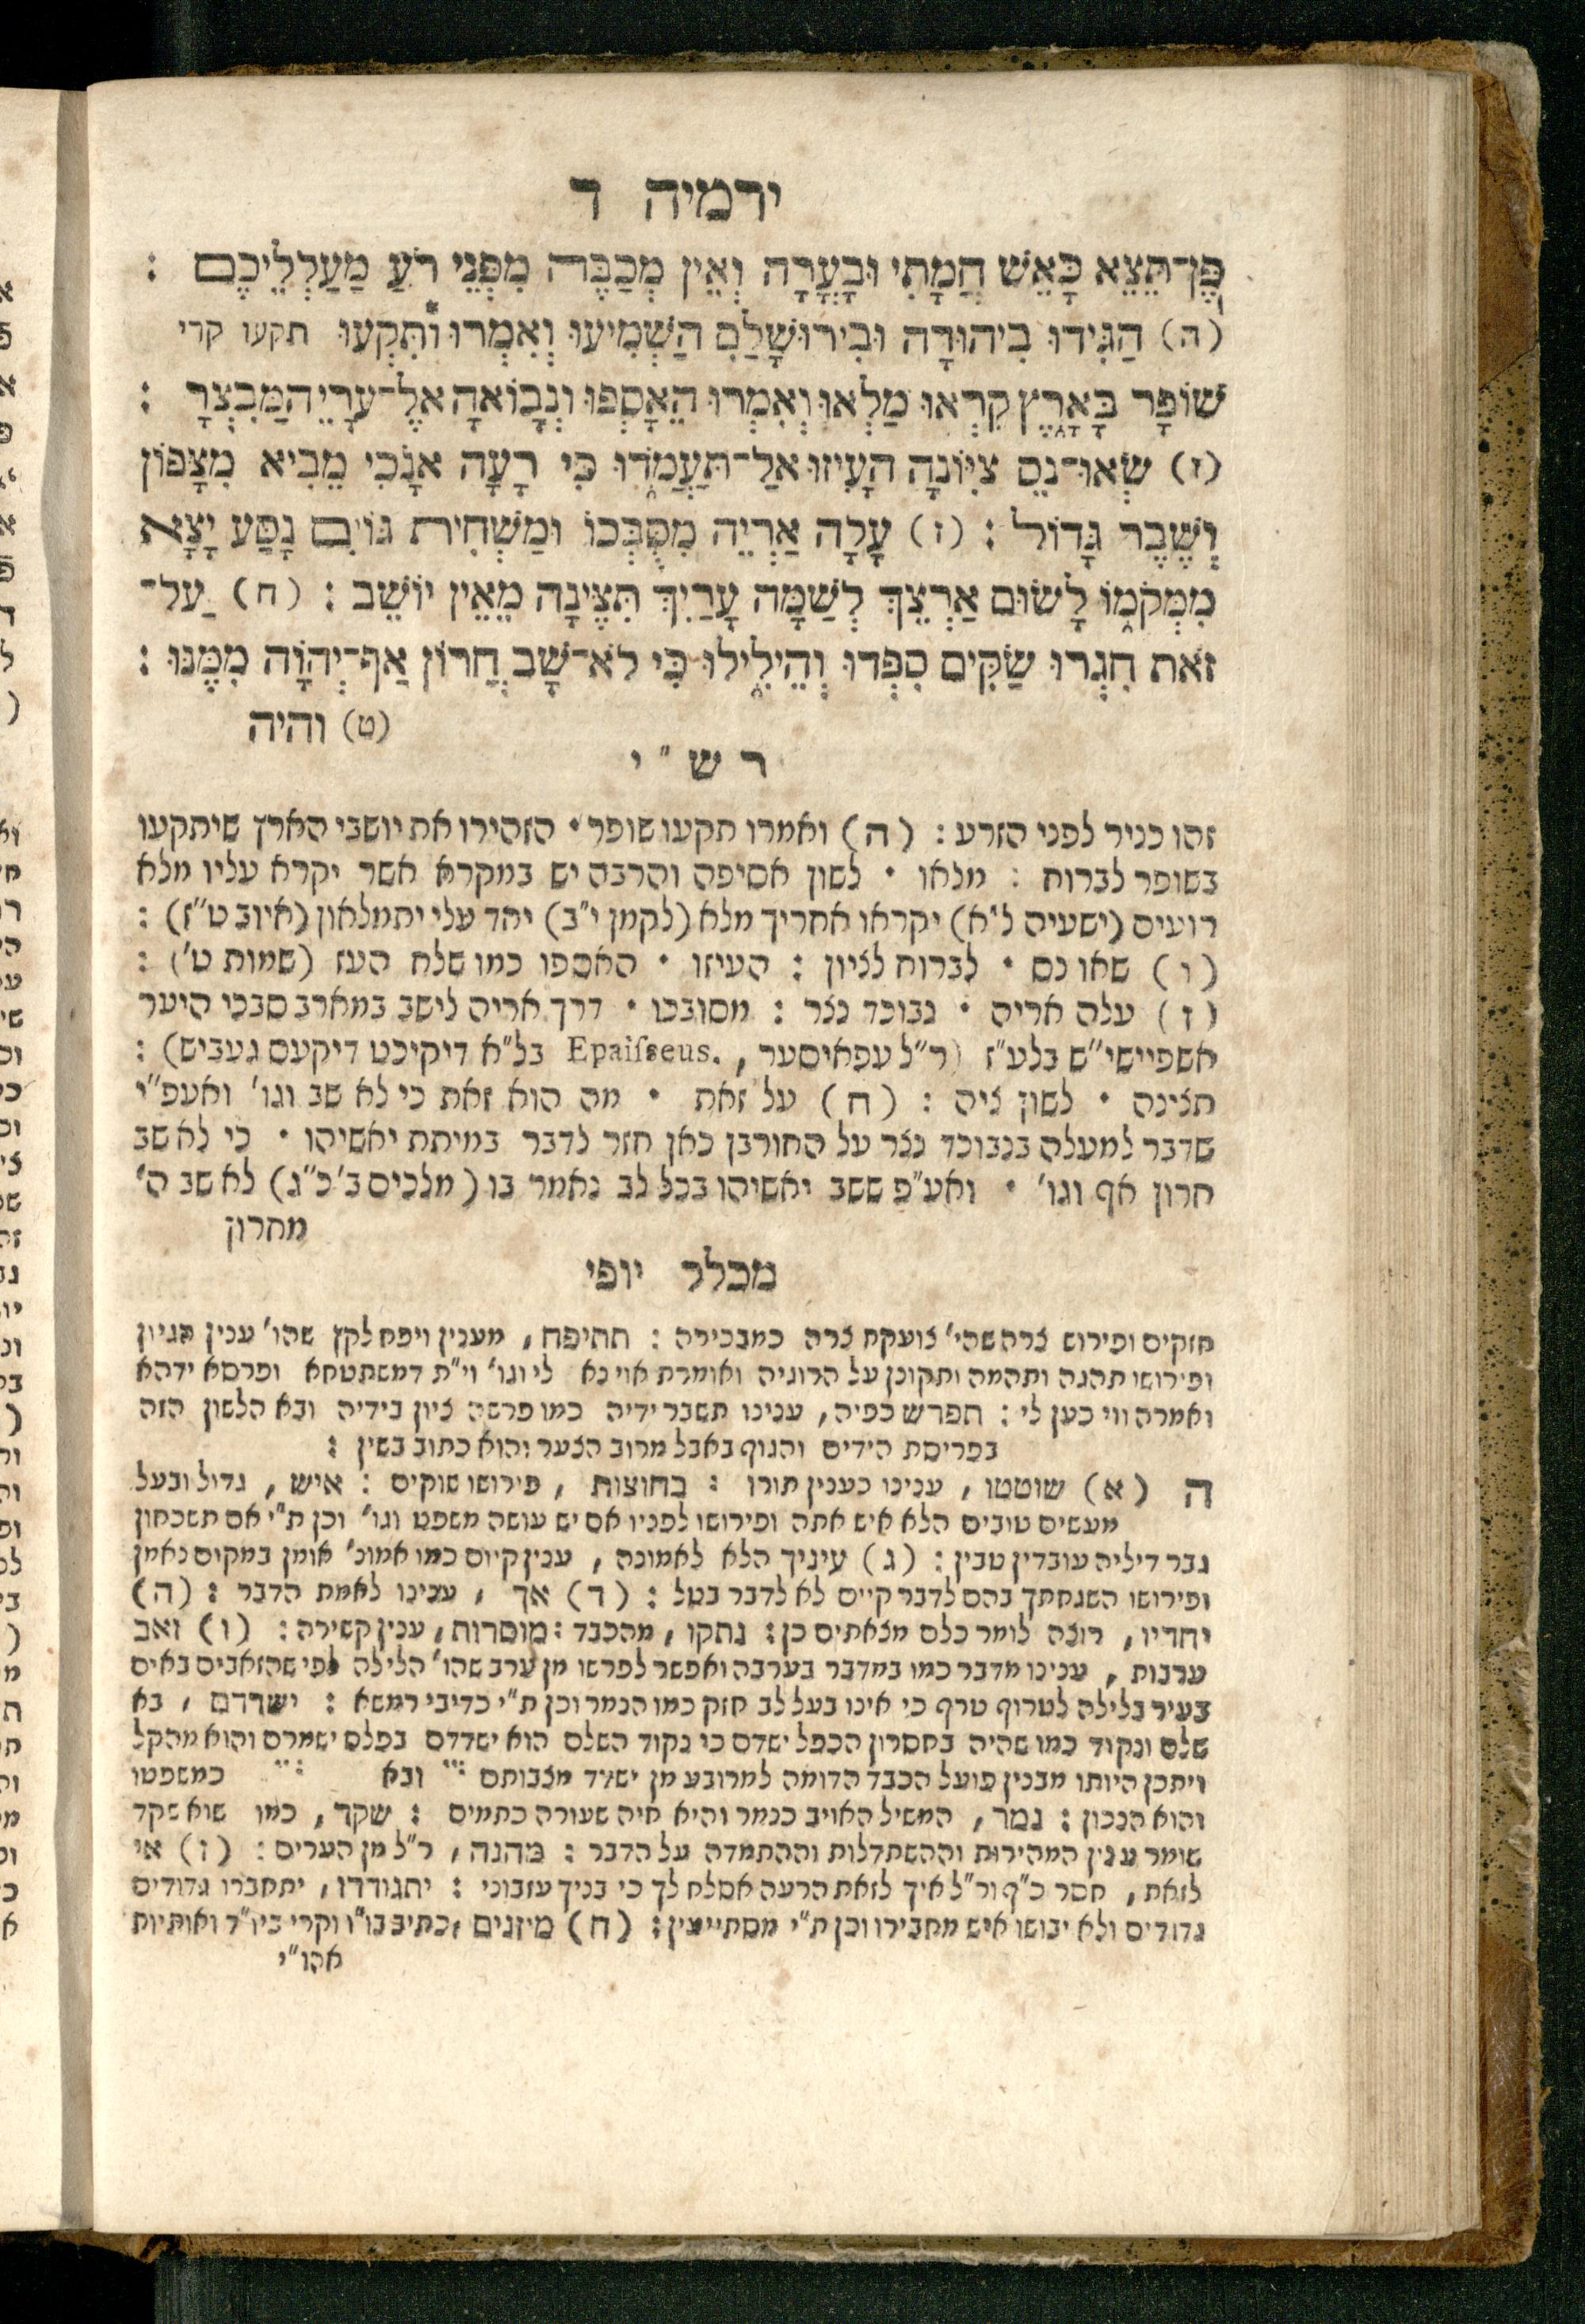 ירמיה ד
פֶּן־תֵּצֵא כָאֵשׁ חֲמָתִי וּבָעֲרָה וְאֵין מְכַבֶּה מִפְּנֵי רֹעַ מַעַלְלֵיכֶם :
(ה) הַגִּידוּ בִיהוּדָה וּבִירוּשָׁלִַם הַשְׁמִיעוּ וְאִמְרוּ וּתִקְעוּ תקעו קרי
שׁוֹפָר בָּאָרֶץ קִרְאוּ מַלְאוּ וְאִמְרוּ הֵאָסְפוּ וְנָבוֹאָה אֶל־עָרֵי הַמִּבְצָר :
(ו) שְׂאוּ־נֵס צִיּוֹנָה הָעִיזוּ אַל־תַּעֲמֹדוּ כִּי רָעָה אָנֹכִי מֵבִיא מִצָּפוֹן
וְשֶׁבֶר גָּדוֹל : (ז) עָלָה אַרְיֵה מִסֻּבְּכוֹ וּמַשְׁחִית גּוֹיִם נָסַע יָצָא
מִמְּקֹמוֹ לָשׂוּם אַרְצֵךְ לְשַׁמָּה עָרַיִךְ תִּצֶּינָה מֵאֵין יוֹשֵׁב : (ח) עַל־
זֹאת חִגְרוּ שַׂקִּים סִפְדוּ וְהֵילִילוּ כִּי לֹא־שָׁב חֲרוֹן אַף־יְהוָֹה מִמֶּנּוּ :
(ט) והיה
רש״י
זהו כניר לפני הזרע : (ה) ואמרו תקעו שופר • הזהירו את יושבי הארץ שיתקעו
בשופר לברוח : מלאו • לשון אסיפה והרבה יש במקרא אשר יקרא עליו מלא
רועים (ישעיה ל״א) יקראו אחריך מלא (לקמן י״ב) יחד עלי יתמלאון (איוב ט״ז) :
(ו) שאו נס • לברוח לציון : העיזו • האספו כמו שלח העז (שמות ט׳) :
(ז) עלה אריה • נבוכד נצר : מסובכו • דרך אריה לישב במארב סבכי היער
אשפיישי״ש בלע״ז (ר״ל עפאיסער , Epaisseus. בל״א דיקיכט דיקעס געביש) :
תצינה • לשון ציה : (ח) על זאת • מה הוא זאת כי לא שב וגו׳ ואעפ״י
שדבר למעלה בנבוכד נצר על החורבן כאן חזר לדבר במיתת יאשיהו • כי לא שב
חרון אף וגו׳ • ואע״פ ששב יאשיהו בכל לב נאמר בו (מלכים ב׳ כ״ג) לא שב ה׳
מחרון
מכלל יופי
חזקים ופירוש צרה שהי׳ צועקת צרה כמבכירה : תתיפח, מענין ויפח לקץ שהו׳ ענין הגיון
ופירושו תהגה ותהמה ותקונן על הרוגיה ואומרת אוי נא לי וגו׳ וי״ת דמשתטחא ופרסא ידהא
ואמרה ווי כען לי : תפרש כפיה, ענינו תשבר ידיה כמו פרשה ציון בידיה ובא הלשון הזה
בפריסת הידים והגוף באבל מרוב הצער והוא כתוב בשין :
ה (א) שוטטו, ענינו כענין תורו : בחוצות, פירושו שוקים : איש, גדול ובעל
מעשים טובים הלא איש אתה ופירושו לפניו אם יש עושה משפט וגו׳ וכן ת״י אם תשכחון
גבר דיליה עובדין טבין : (ג) עיניך הלא לאמונה, ענין קיום כמו אמונ׳ אומן במקום נאמן
ופירושו השגחתך בהם לדבר קיים לא לדבר בטל : (ד) אך, ענינו לאמת הדבר : (ה)
יחדיו, רוצה לומר כלם מצאתים כן : נתקו, מהכבד : מוסרות, ענין קשירה : (ו) זאב
ערבות, ענינו מדבר כמו במדבר בערבה ואפשר לפרשו מן ערב שהו׳ הלילה לפי שהזאבים באים
בעיר בלילה לטרוף טרף כי אינו בעל לב חזק כמו הנמר וכן ת״י כדיבי רמשא : ישדדם, בא
שלם ונקוד כמו שהיה בחסרון הכפל ישדם כי נקוד השלם הוא ישדדם בפלס ישמרם והוא מהקל
ויתכן היותו מבנין פועל הכבד הדומה למרובע מן ישדד מצבותם ובא כמשפטו
והוא הנכון : נמר, המשיל האויב כנמר והיא חיה שעורה כתמים : שקד, כמו שוא שקד
שומר ענין המהירות וההשתדלות וההתמדה על הדבר : מהנה, ר״ל מן הערים : (ז) אי
לזאת, חסר כ״ף ור״ל איך לזאת הרעה אסלח לך כי בניך עזבוני : יתגודדו, יתחברו גדודים
גדודים ולא יבושו איש מחבירו וכן ת״י מסתייעין : (ח) מיזנים כתיב בו״ו וקרי ביו״ד ואותיות
אהו״י